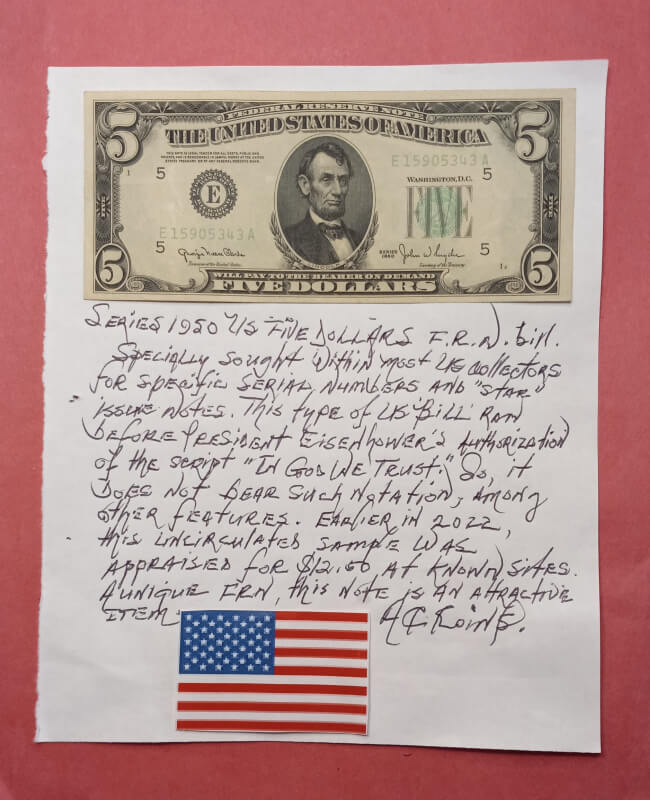 FEDERAL RESERVE NOTE
THE UNITED STATES OF AMERICA
5
5
THIS NOTE IS LEGAL TENDER FOR ALL DEBTS, PUBLIC AND
PRIVATE, AND IS REDEEMABLE IN LAWFUL MONEY AT THE UNITED
STATES TREASURY, OR AT ANY FEDERAL RESERVE BANK
1
5
E
E 15905343 A
WASHINGTON, D.C.
5
E 15905343 A
5
SERIES
1950
5
Treasurer of the United States
Secretary of the Treasury
WILL PAY TO THE BEARER ON DEMAND
FIVE DOLLARS
5
5
SERIES 1950 US "FIVE DOLLARS F.R.N. bill.
Specially sought within most US collectors
for specific SERIAL NUMBERS AND "STAR"
issue notes. This type of US "Bill" RAN
before President Eisenhower's authorization
of the script "In God We Trust." So, it
does not bear such notation, among
other features. Earlier in 2022,
this uncirculated sample was
appraised for $12.00 at known sites.
A unique FRN, this note is an attractive
item.